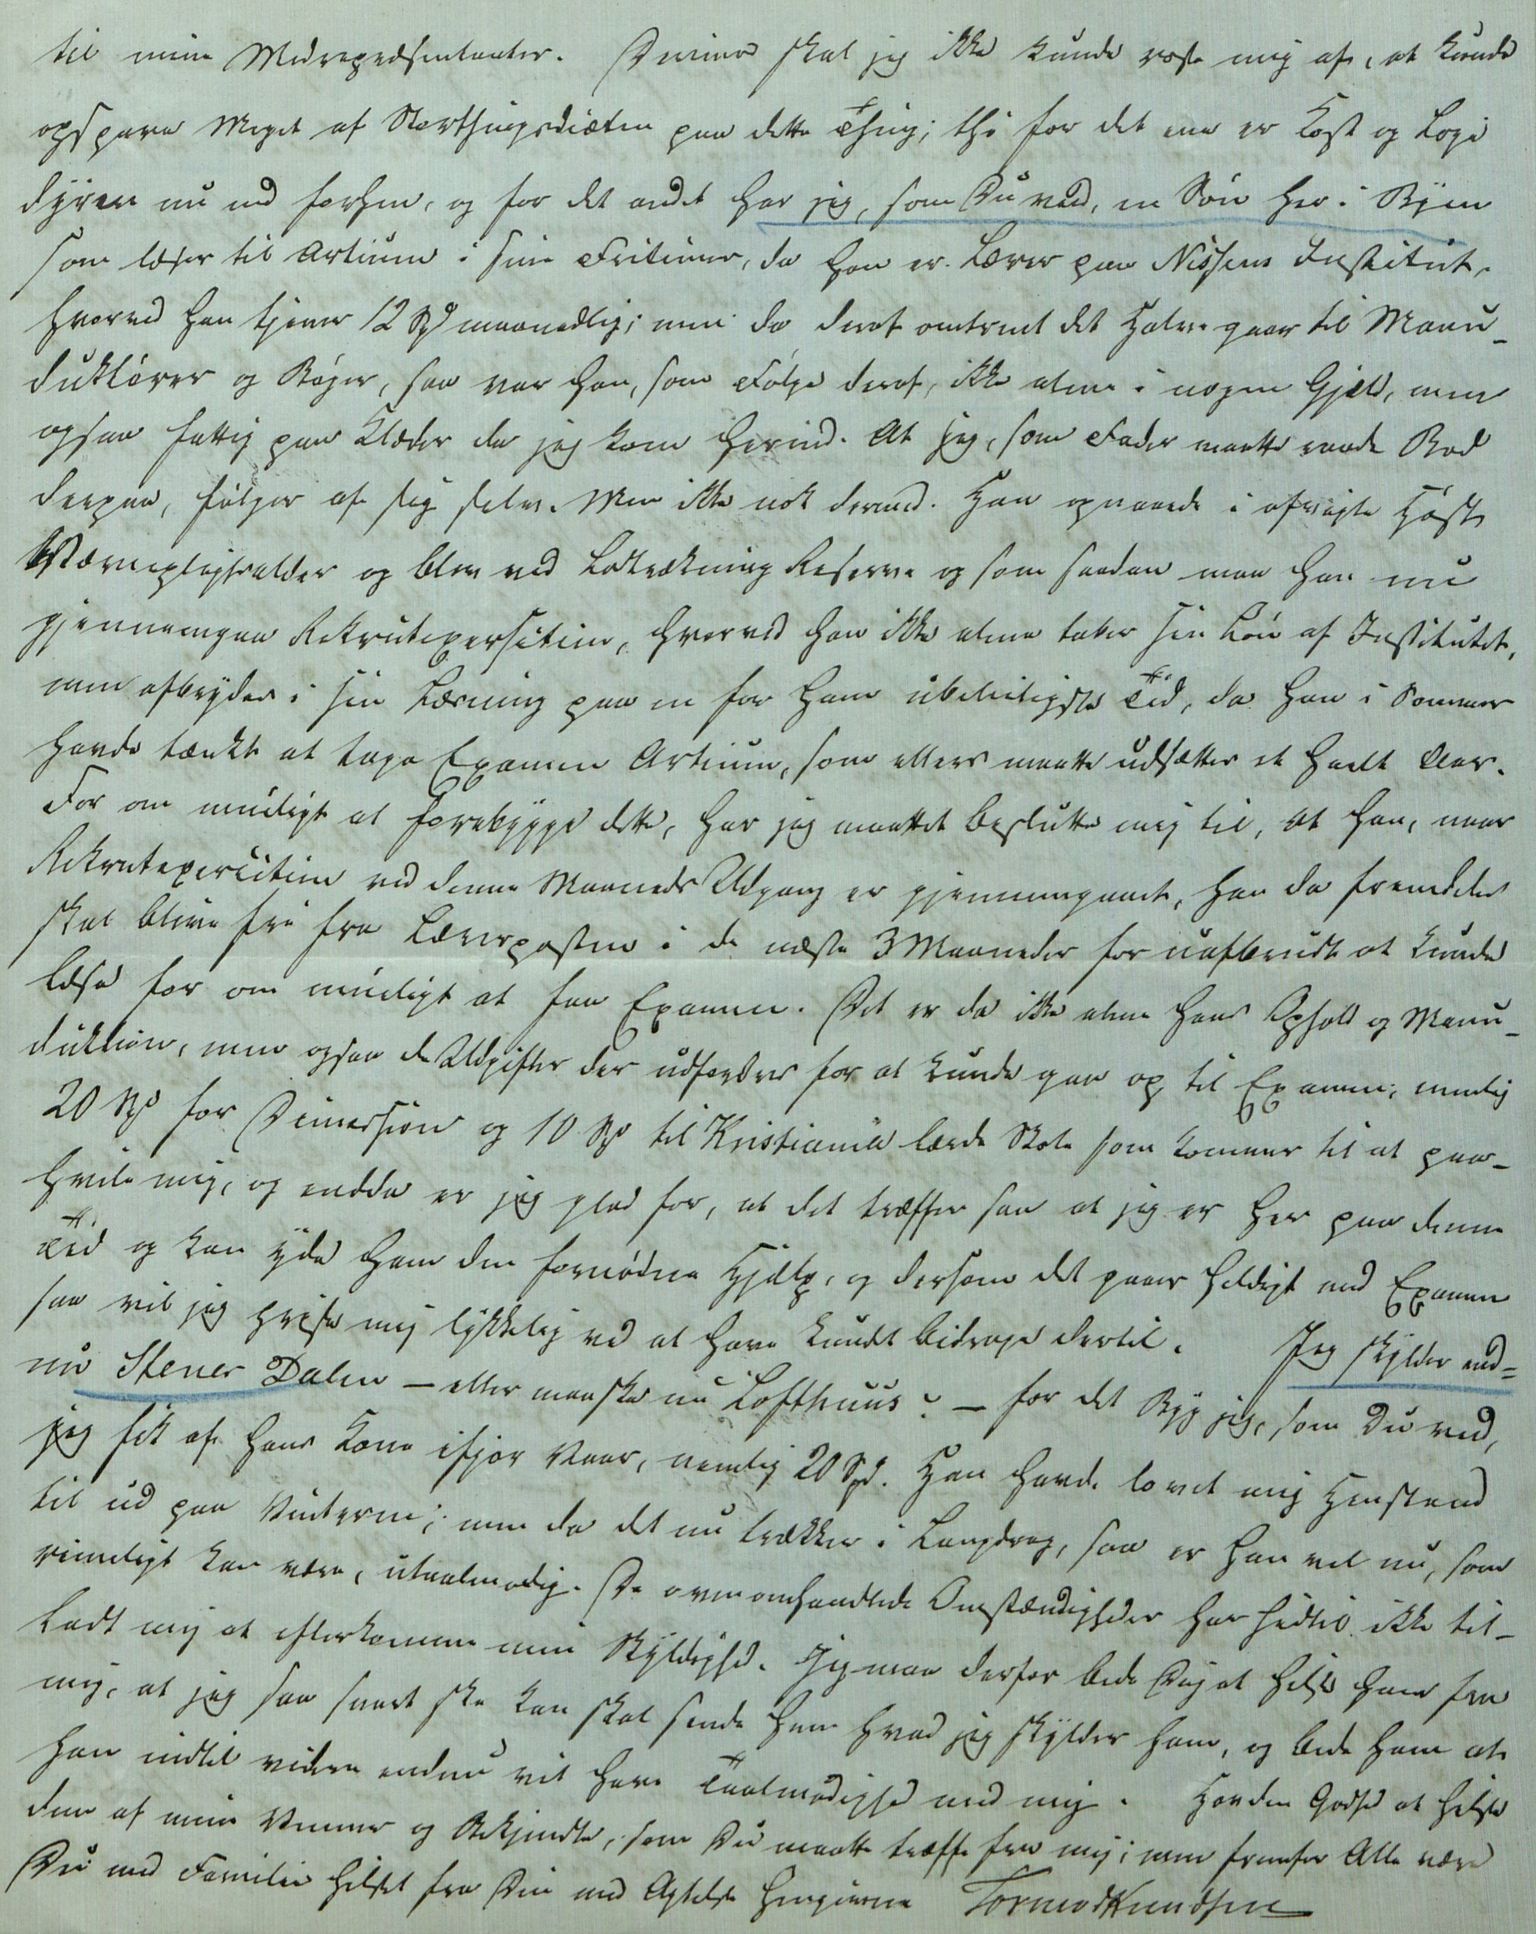 til mine Medrepræsentanter. Denne skal jeg ikke kunde rose mig af, at kunde
opspare Meget af Storthingsdiæten paa dette Thing; thi for det ene er Kost og Logi
dyrere nu end forhen, og for det andet har jeg, som Du ved, en Søn her i Byen
som læser til Artium i sine Fritimer, da han er Lærer paa Nissens Institut,
hvorved han tjener 12 Spd maanedlig; men da deraf omtrent det Halve gaar til Manu-
duktører og Bøger, saa var han, som Følge deraf, ikke alene i nogen Gjæld, men
ogsaa fattig paa Klæder da jeg kom herind. At jeg, som Fader maatte raade Bod
derpaa, følger af sig selv. Men ikke nok dermed. Han opnaaede i afvigte Høst
Værnepligtsalder og blev ved Lodtrækning Reserve og som saadan maa han nu
gjennemgaa Rekrutexersitien, hvorved han ikke alene taber sin Løn af Institutet,
men afbrydes i sin Læsning paa en for ham ubeleiligste Tid, da han i Sommer
havde tænkt at tage Examen Artium, som ellers maatte udsættes et heelt Aar.
For om muligt at forebygge dette, har jeg maattet beslutte mig til, at han, naar
Rekrutexercitien ved denne Maaneds Udgang er gjennemgaaet, han da fremdeles
skal blive fri fra Lærerposten i de næste 3 Maaneder for uafbrudt at kunde
læse for om muligt at faa Examen. Det er da ikke alene hans Ophold og Manu-
duktion, men ogsaa de Udgifter der udfordres for at kunde gaa op til Examen; nemlig
20 Spd for Dimission og 10 Spd til Kristiania lærde Skole som kommer til at paa-
hvile mig, og endda er jeg glad for, at det træffer saa at jeg er her paa denne
Tid og kan yde ham den fornødne Hjælp, og dersom det gaaer heldigt med Examen
saa vil jeg prise mig lykkelig ved at have kundet bidrage dertil. Jeg skylder end-
nu Stener Dalen – eller maaske nu Lofthuus? – for det Byg jeg, som Du ved,
jeg fik af hans Kone ifjor Vaar, nemlig 20 Spd. Han havde lovet mig Henstand
til ud paa Vinteren; men da det nu trækker i Langdrag, saa er han vel nu, som
rimeligt kan være, utaalmodig. De ovenomhandlede Omstændigheder har hidtil ikke til-
ladt mig at efterkomme min Skyldighed. Jeg maa derfor bede Dig at hilse ham fra
mig, at jeg saa snart ske kan skal sende ham hvad jeg skylder ham, og bede ham at
han indtil videre endnu vil have Taalmodighed med mig. Hav den Godhed at hilse
dem af mine Venner og Bekjendte, som Du maatte træffe fra mig; men fremfor Alle være
Du med Familie hilset fra Din med Agtelse hengivne Tormod Knudsen